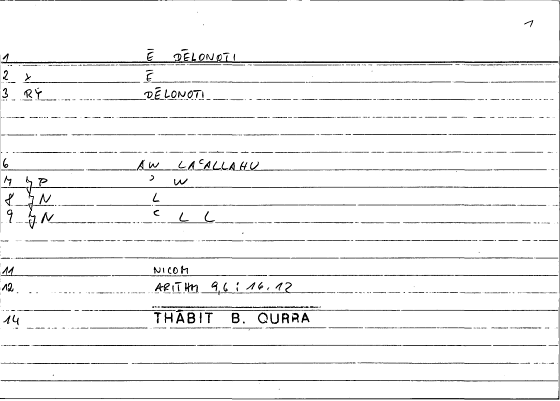 1
1 Ē DĒLONOTI
2 x Ē
3 RY DĒLONOTI
6 AW LAʿALLAHU
7 P ʾ W
8 N L
9 N ʿ L L
11 NICOM
12 ARITHM 9,6 ; 16.12
14 THĀBIT B. QURRA